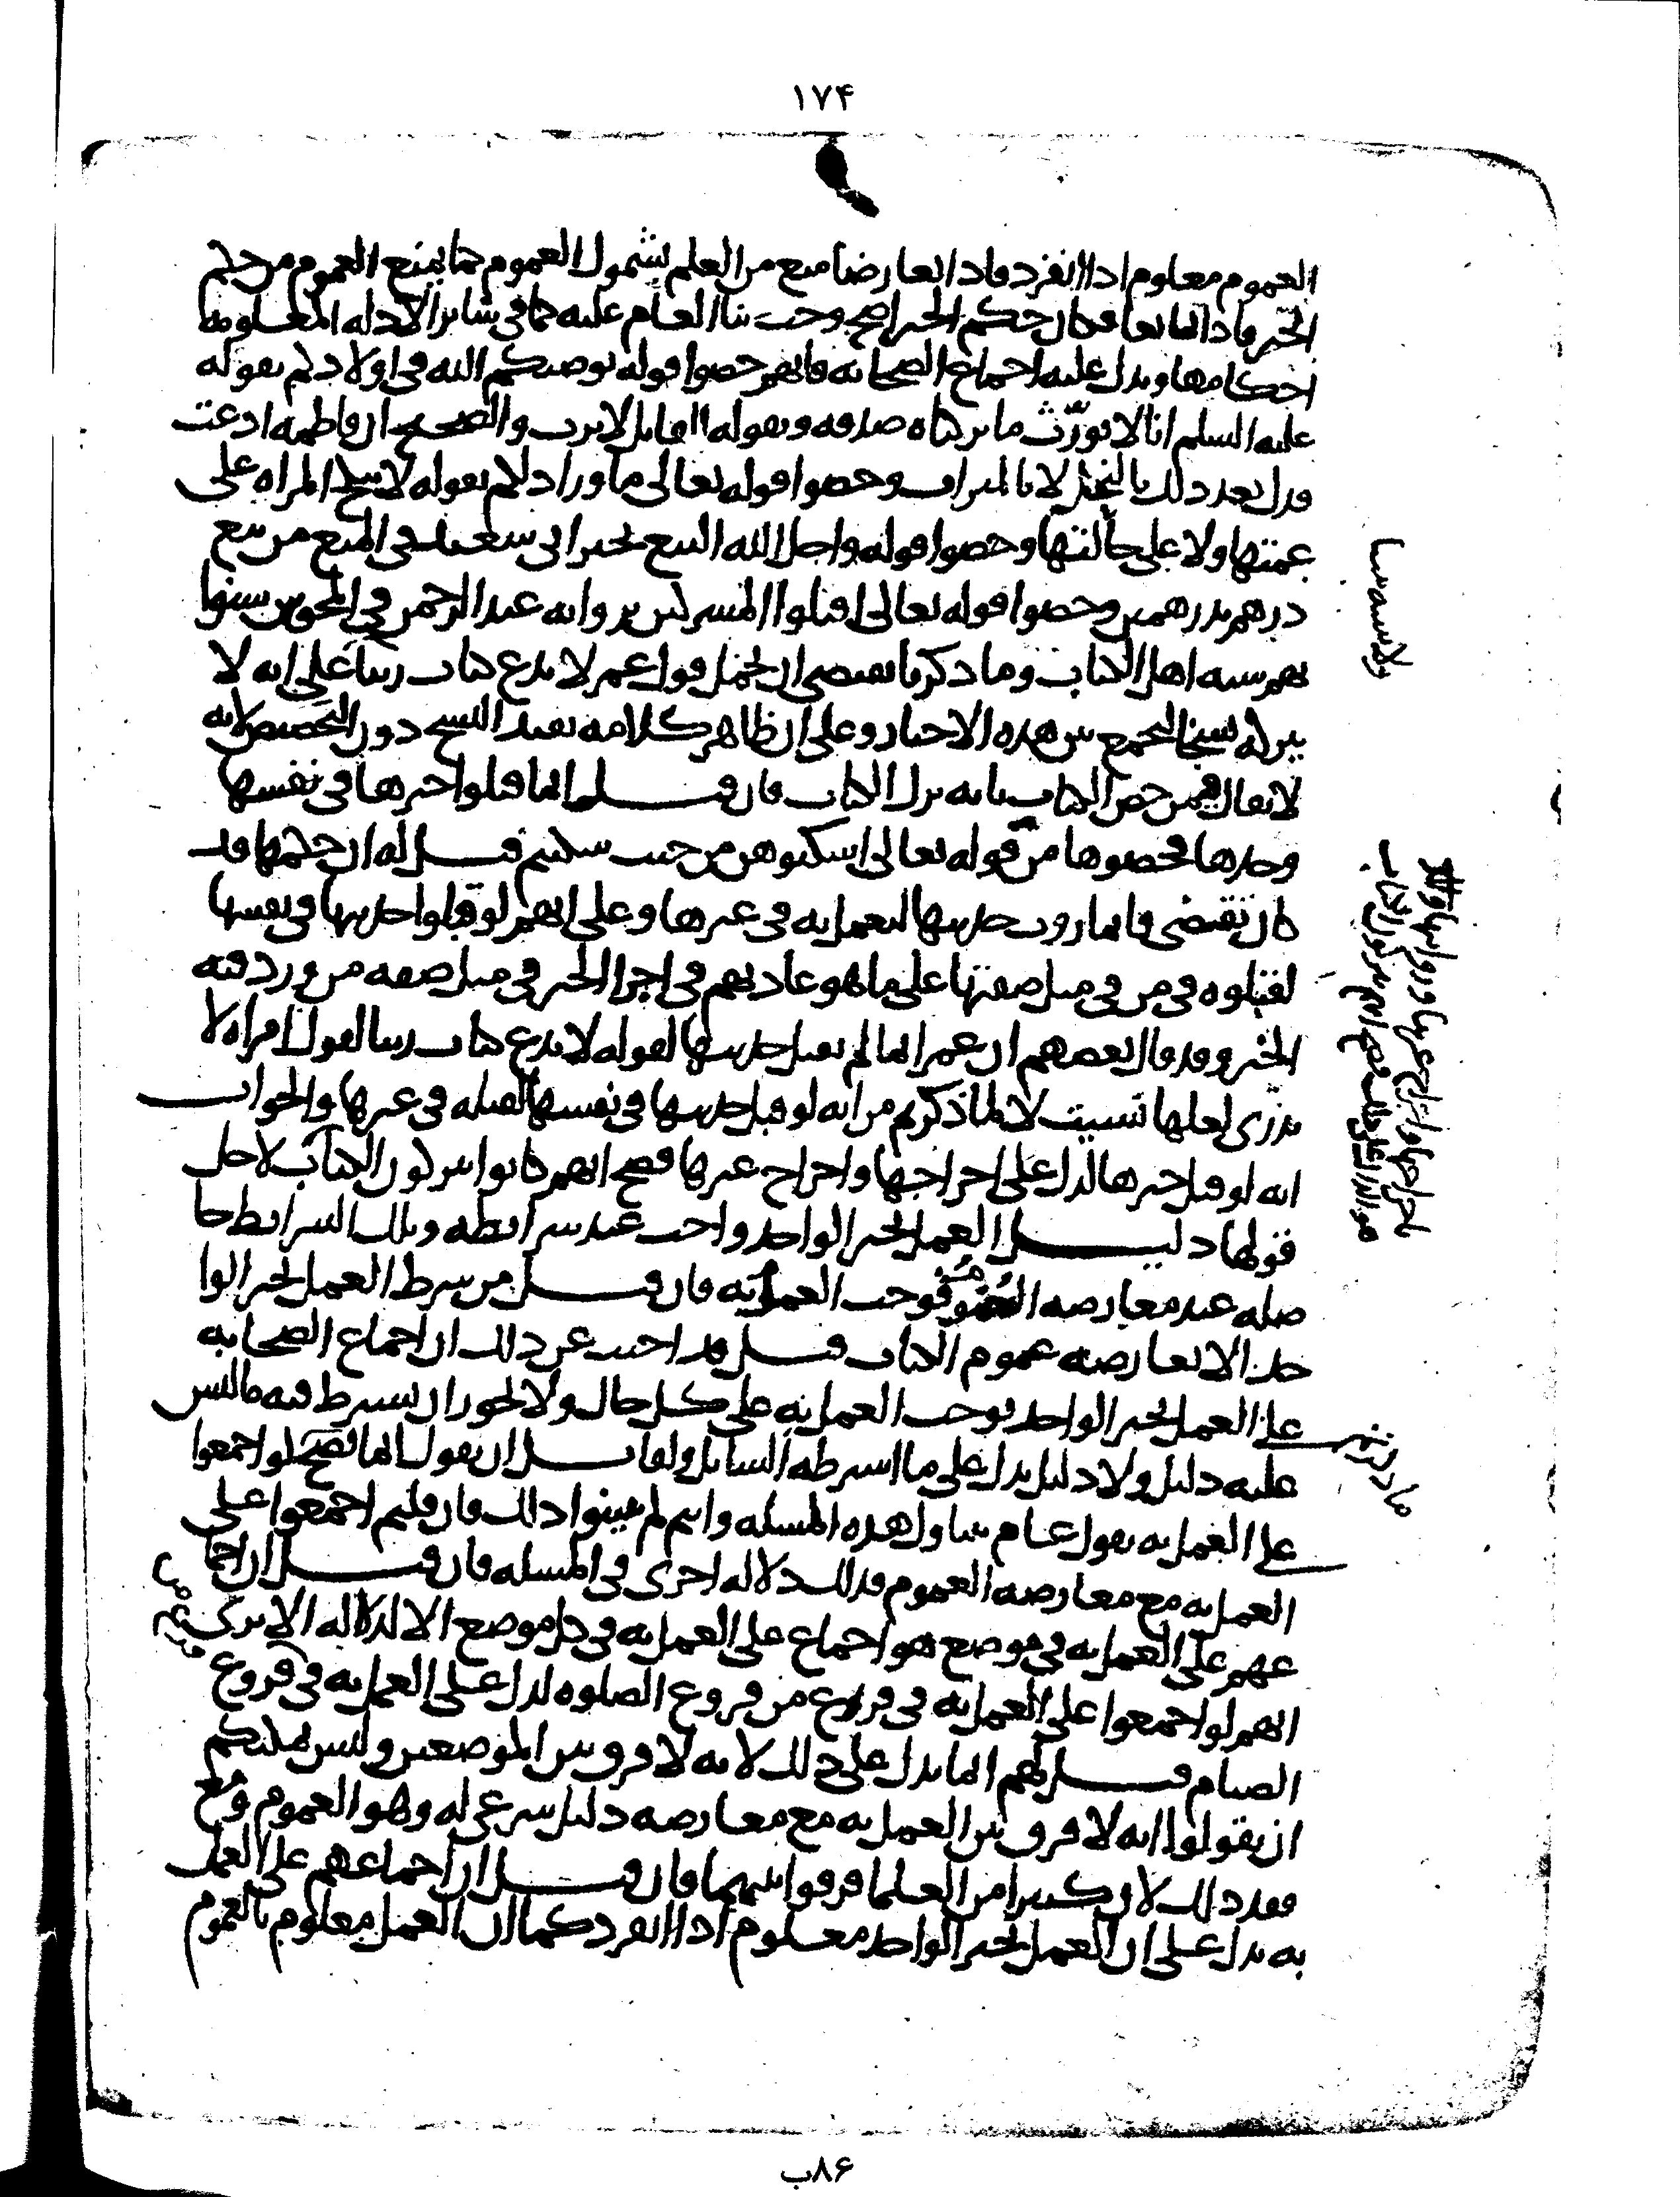 ١٧۴
العموم معلوم اذا انفرد فاذا تعارضا منع من العلم بشمول العموم كما يمنع العموم من حكم
الخبر فاذا تمانعا فكان حكم الخبر اخص وجب بنا العام عليه كما في سائر الادلة المعلومة
احكامها ويدل عليه اجماع الصحابة فانهم خصوا قوله يوصيكم الله في اولادكم بقوله
عليه السلم انا لا نورّث ما تركناه صدقة وبقوله القاتل لا يرث والصحيح ان فاطمة ادعت
فدك بعد ذلك بالنحل لا بالميراث وخصوا قوله تعالى ما ورا ذلكم بقوله لا تنكح المراة على
عمتها ولا على خالتها وخصوا قوله واحل الله البيع بخبر ابي سعيد في المنع من بيع
درهم بدرهمين وخصوا قوله تعالى اقتلوا المشركين برواية عبد الرحمن في المجوس سنوا
بهم سنة اهل الكتاب وما ذكرنا يقتضي ان نحمل قول عمر لا ندع كتاب ربنا على انه لا
يترك نسخا لنجمع بين هذه الاخبار وعلى ان ظاهر كلامه يفيد النسخ دون التخصيص لانه
لا يقال فيمن خص الكتاب بانه ترك الكتاب فان قيل انما قبلوا خبرها في نفسها
وحدها فخصوها من قوله تعالى اسكنوهن من حيث سكنتم قيل له ان حكمها قد
كان تقضى فانما روت حديثها ليعمل به في غيرها وعلى انهم لو قبلوا حديثها في نفسها
لقبلوه في من في مثل صفتها على ما هو عادتهم في اجرا الخبر في مثل صفة من ورد فيه
الخبر وقد قال بعضهم ان عمر انما لم يقبل حديثها لقوله لا ندع كتاب ربنا لقول امراة لا
ندرى لعلها نسيت لا لما ذكرتم من انه لو قبل حديثها في نفسها لقبله في غيرها والجواب
انه لو قبل خبرها لدل على اخراجها واخراج غيرها فصح انهم كانوا يتركون الكتاب لاجل
قولها دليل العمل بخبر الواحد واجب عند شرائطه وتلك الشرائط حا
صلة عند معارضة العموم فوجب العمل به فان قيل من شرط العمل بخبر الوا
حد الا يعارضه عموم الكتاب قيل قد اجيب عن ذلك ان اجماع الصحابة
على العمل بخبر الواحد يوجب العمل به على كل حال ولا يجوز ان يشترط فيه ما ليس
عليه دليل ولا دليل يدل على ما اشترطه السائل ولقائل ان يقول انما يصح لو اجمعوا
على العمل به بقول عام يتناول هذه المسئلة وانتم لم تبينوا ذلك فان قلتم اجمعوا على
العمل به مع معارضة العموم فذلك دلالة اخرى في المسئلة فان قيل ان اجما
عهم على العمل به في موضع هو اجماع على العمل به في كل موضع الا لدلالة الا ترى
انهم لو اجمعوا على العمل به في فرع من فروع الصلوة لدل على العمل به في فروع
الصيام قيل لهم انما يدل على ذلك لانه لا فرق بين الموضعين وليس يمكنكم
ان تقولوا انه لا فرق بين العمل به مع معارضة دليل شرعي له وهو العموم ومع
فقد ذلك لان كثيرا من العلما فرقوا بينهما فان قيل ان اجماعهم على العمل
به يدل على ان العمل بخبر الواحد معلوم اذا انفرد كما ان العمل معلوم بالعموم
٨۶ب